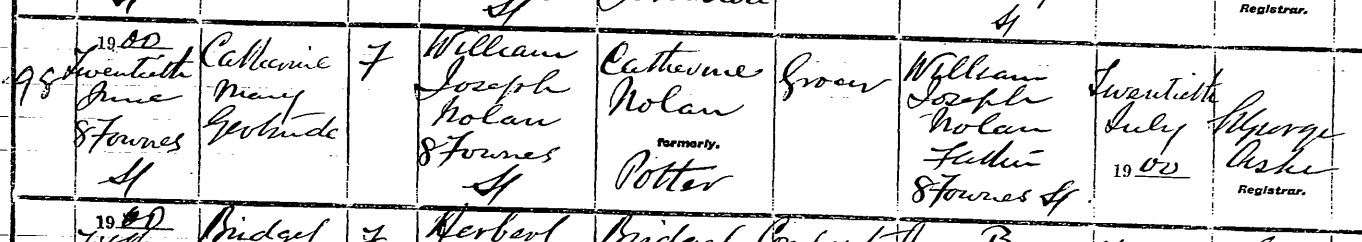 St
St
St
Registrar.
98
1900
Twentieth
June
8 Fownes
St
Catherine
Mary
Gertrude
F
William
Joseph
Nolan
8 Fownes
St
Catherine
Nolan
formerly.
Potter
Grocer
William
Joseph
Nolan
Father
8 Fownes St
Twentieth
July
1900
George
Registrar.
1900
Bridget
F
Herbert
Bridget